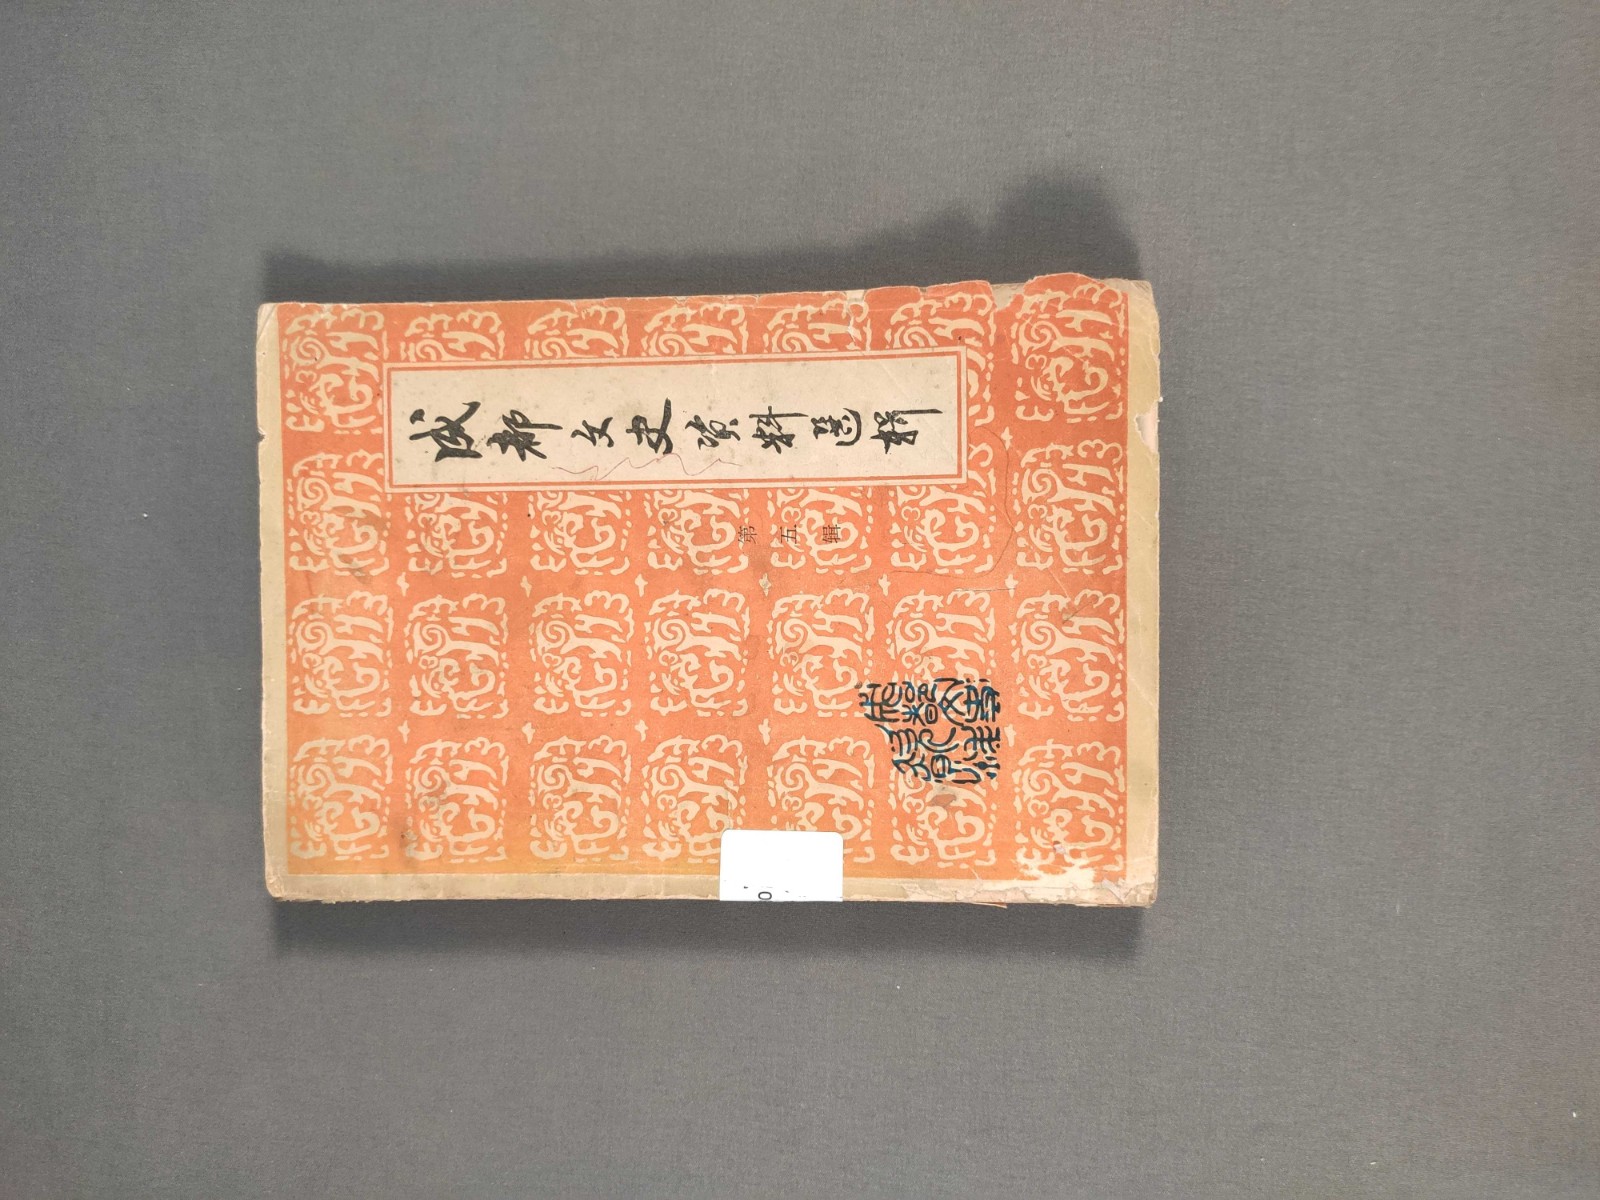 成都文史资料选辑
第五辑